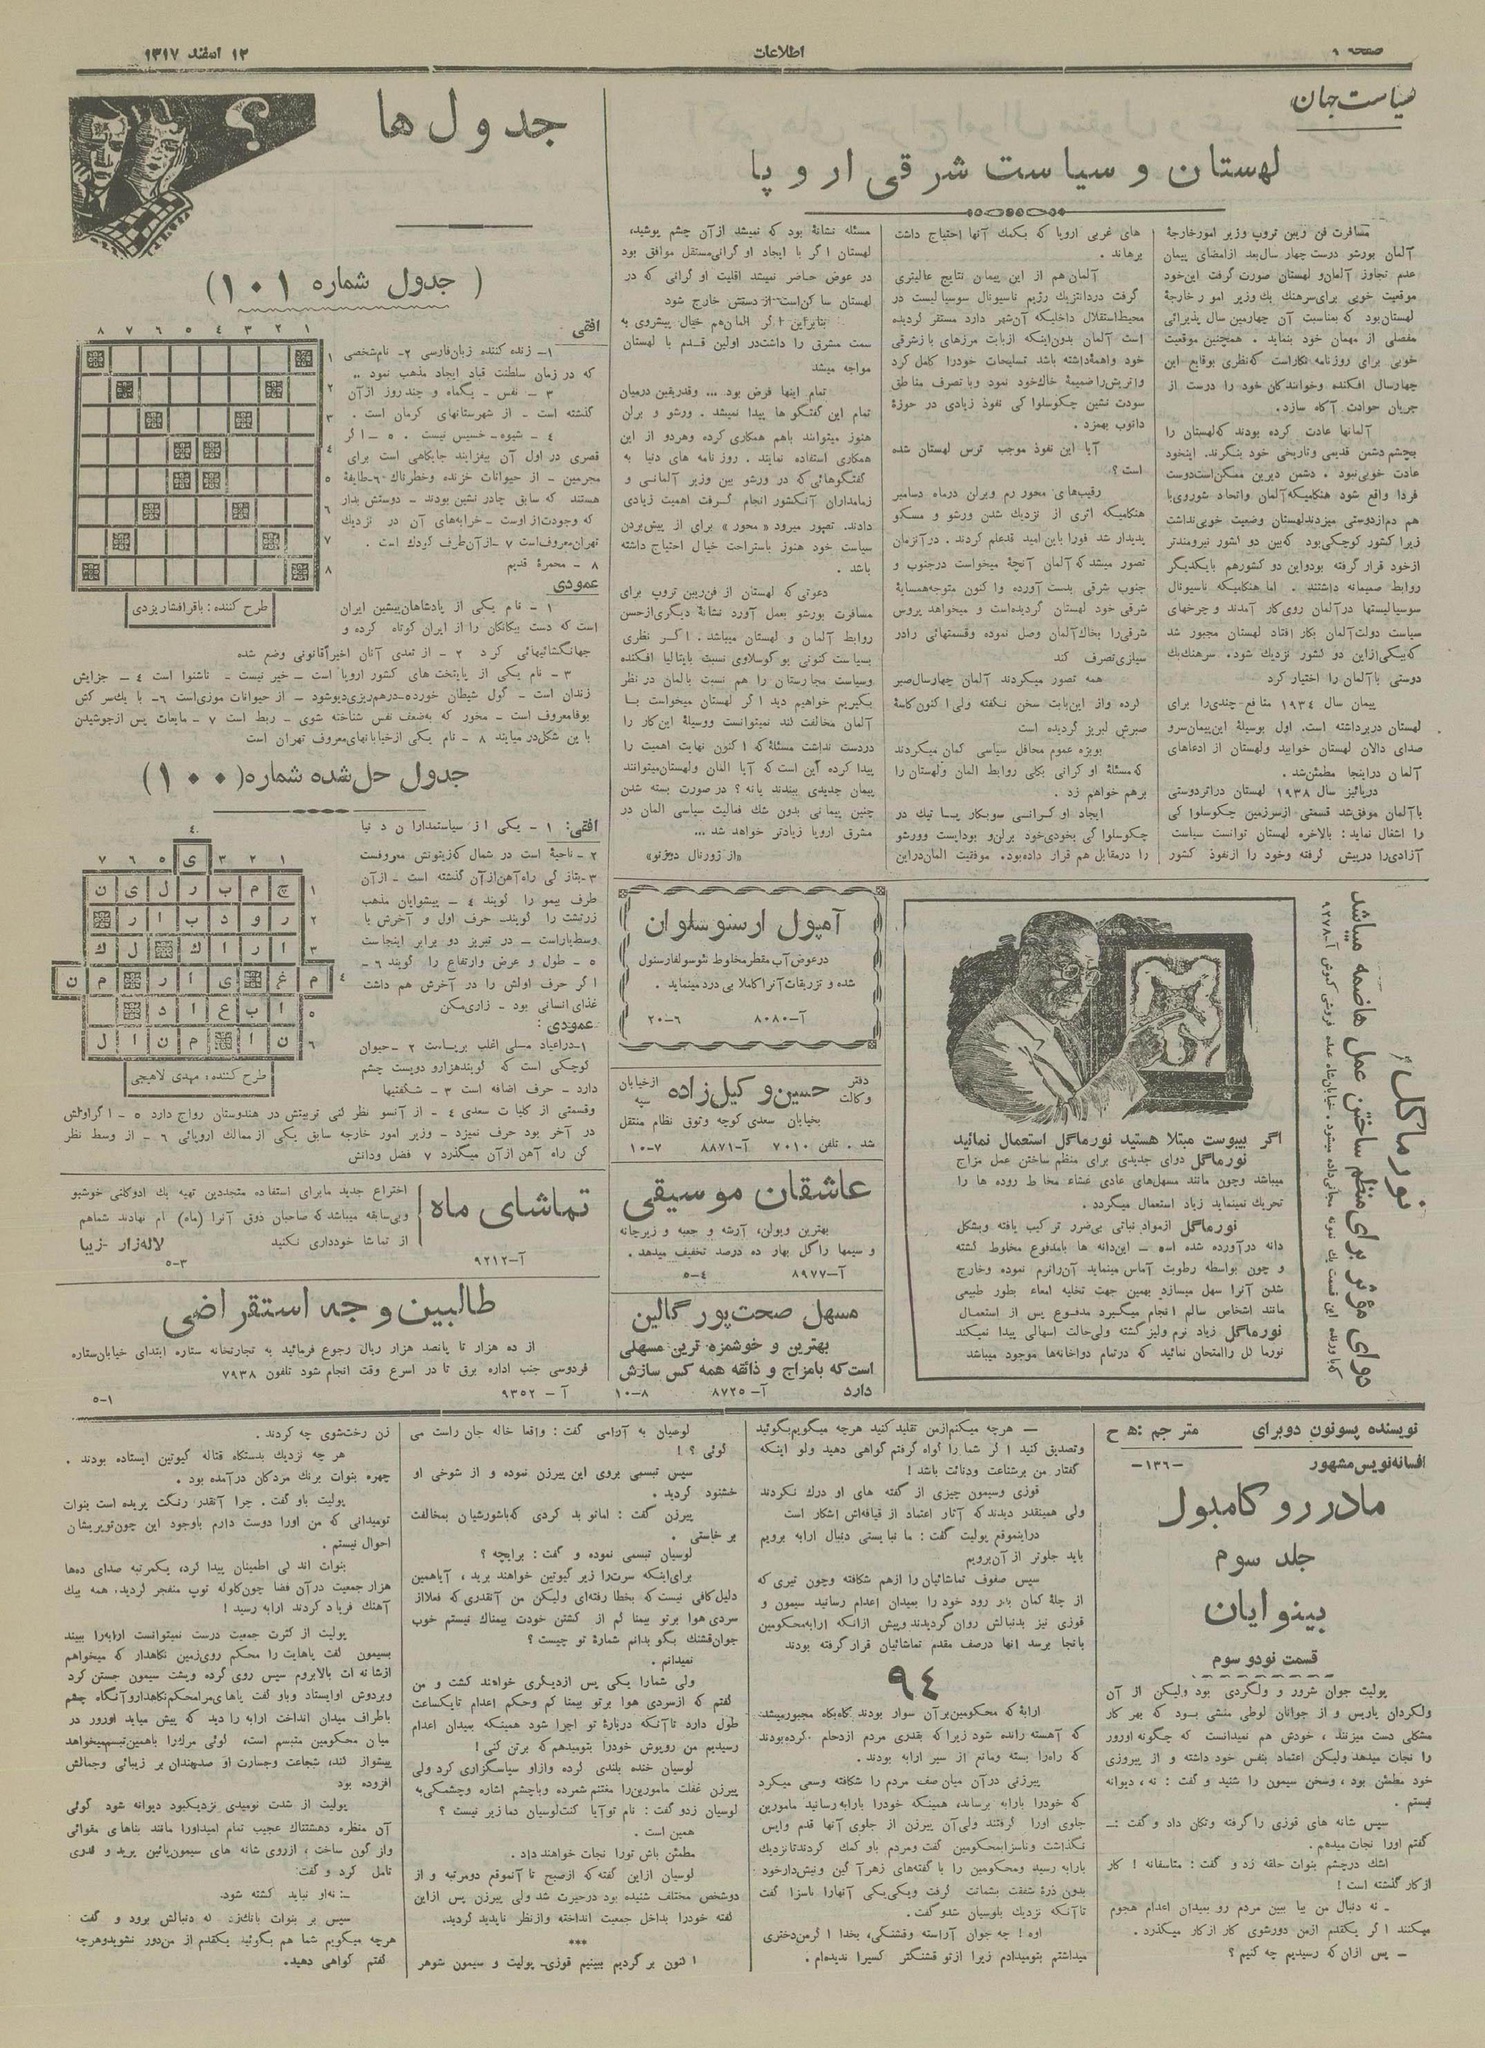 صفحه ٦
اطلاعات
١٢ اسفند ١٣١٧
سیاست جهان
لهستان و سیاست شرقی اروپا
مسافرت فن ریبن تروپ وزیر امورخارجهٔ
آلمان بورشو درست چهار سال بعد از امضای پیمان
عدم تجاوز آلمان و لهستان صورت گرفت این خود
موقعیت خوبی برای سرهنگ بك وزیر امور خارجهٔ
لهستان بود که بمناسبت آن چهارمین سال پذیرائی
مفصلی از مهمان خود بنماید . همچنین موقعیت
خوبی برای روزنامه نگاراست که نظری بوقایع این
چهارسال افکنده وخوانندگان خود را درست از
جریان حوادث آگاه سازد.
آلمانها عادت کرده بودند که لهستان را
بچشم دشمن قدیمی وتاریخی خود بنگرند. اینخود
عادت خوبی نبود . دشمن دیرین ممکن است دوست
فردا واقع شود هنگامیکه آلمان واتحاد شوروی با
هم دم از دوستی میزدند لهستان وضعیت خوبی نداشت
زیرا کشور کوچکی بود که بین دو کشور نیرومندتر
از خود قرار گرفته بود واین دو کشور هم با یکدیگر
روابط صمیمانه داشتند . اما هنگامیکه ناسیونال
سوسیالیستها در آلمان روی کار آمدند و چرخهای
سیاست دولت آلمان بکار افتاد لهستان مجبور شد
که بیکی از این دو کشور نزدیك شود. سرهنگ بك
دوستی با آلمان را اختیار کرد
پیمان سال ١٩٣٤ منافع چندی را برای
لهستان دربرداشته است. اول بوسیلهٔ این پیمان سرو
صدای دالان لهستان خوابید ولهستان از ادعاهای
آلمان در اینجا مطمئن شد .
در پائیز سال ١٩٣٨ لهستان در اثر دوستی
با آلمان موفق شد قسمتی از سرزمین چکوسلواکی
را اشغال نماید: بالاخره لهستان توانست سیاست
آزادی را در پیش گرفته وخود را از نفوذ کشور
های غربی اروپا که بکمك آنها احتیاج داشت
برهاند .
آلمان هم از این پیمان نتایج عالیتری
گرفت در دانتزیك رژیم ناسیونال سوسیالیست در
محیط استقلال داخلیکه آن شهر دارد مستقر گردیده
است آلمان بدون اینکه از بابت مرزهای باز شرقی
خود واهمهٔ داشته باشد تسلیحات خود را کامل کرد
واتریش را ضمیمهٔ خاك خود نمود و با تصرف مناطق
سودت نشین چکوسلواکی نفوذ زیادی در حوزهٔ
دانوب بهمزد .
آیا این نفوذ موجب ترس لهستان شده
است ؟
رقیب‌های محور رم وبرلن در ماه دسامبر
هنگامیکه اثری از نزدیك شدن ورشو و مسکو
پدیدار شد فورا باین امید قد علم کردند . در آنزمان
تصور میشد که آلمان آنچهٔ میخواست در جنوب و
جنوب شرقی بدست آورده و اکنون متوجه همسایهٔ
شرقی خود لهستان گردیده است و میخواهد پروس
شرقی را بخاك آلمان وصل نموده وقسمتهائی را در
سیلزی تصرف کند
همه تصور میکردند آلمان چهار سال صبر
کرده و از این بابت سخن نگفته ولی اکنون کاسهٔ
صبرش لبریز گردیده است
بویژه عموم محافل سیاسی گمان میکردند
که مسئلهٔ اوکرانی بکلی روابط المان ولهستان را
برهم خواهم زد .
ایجاد اوکرانی سوبکارپاتیك در
چکوسلواکی بخودی خود برلن و بوداپست و ورشو
را در مقابل هم قرار داده بود. موفقیت المان در این
مسئله نشانهٔ بود که نمیشد از آن چشم پوشید،
لهستان اگر با ایجاد اوکرانی مستقل موافق بود
در عوض حاضر نمیشد اقلیت اوکرانی که در
لهستان ساکن است از دستش خارج شود
بنابر این اگر المان هم خیال پیشروی به
سمت مشرق را داشت در اولین قدم با لهستان
مواجه میشد
تمام اینها فرض بود ... وقدر یقین درمیان
تمام این گفتگو ها پیدا نمیشد . ورشو و برلن
هنوز میتوانند باهم همکاری کرده وهردو از این
همکاری استفاده نمایند . روزنامه های دنیا به
گفتگوهائی که در ورشو بین وزیر آلمانی و
زمامداران آنکشور انجام گرفت اهمیت زیادی
دادند. تصور میرود « محور » برای از پیش بردن
سیاست خود هنوز باستراحت خیال احتیاج داشته
باشد .
دعوتی که لهستان از فن ریبن تروپ برای
مسافرت بورشو بعمل آورد نشانهٔ دیگری از حسن
روابط آلمان و لهستان میباشد . اگر نظری
بسیاست کنونی یوگوسلاوی نسبت بایتالیا افکنده
وسیاست مجارستان را هم نسبت بالمان در نظر
بگیریم خواهیم دید اگر لهستان میخواست با
آلمان مخالفت کند نمیتوانست وسیلهٔ این کار را
در دست نداشت مسئلهٔ که اکنون نهایت اهمیت را
پیدا کرده این است که آیا المان ولهستان میتوانند
پیمان جدیدی ببندند یا نه ؟ در صورت بسته شدن
چنین پیمانی بدون شك فعالیت سیاسی المان در
مشرق اروپا زیادتر خواهد شد ...
«از ژورنال دوژنو»
جدول ها
؟
( جدول شماره ١٠١ )
١ ٢ ٣ ٤ ٥ ٦ ٧ ٨
١
٢
٣
٤
٥
٦
٧
٨
طرح کننده : باقر افشار یزدی
افقی
١- زنده کننده زبان فارسی ٢- نام شخصی
که در زمان سلطنت قباد ایجاد مذهب نمود ..
٣ – نفس - یگماه و چند روز از آن
گذشته است - از شهرستانهای کرمان است .
٤ - شیوه - خسیس نیست . ٥ - اگر
قصری در اول آن بیفزایند جایگاهی است برای
مجرمین - از حیوانات خزنده وخطرناك ٦- طایفهٔ
هستند که سابق چادر نشین بودند - دوستش بدار
که وجودت از اوست - خرابه‌های آن در نزدیك
تهران معروف است ٧ - از آن طرف کودك است .
٨ - محمرهٔ قدیم
عمودی
١ - نام یکی از پادشاهان پیشین ایران
است که دست بیگانگان را از ایران کوتاه کرده و
جهانگشائیهائی کرد ٢ - از تعدی آنان اخیراً قانونی وضع شده
٣ - نام یکی از پایتخت های کشور اروپا است - خیر نیست - ناشنوا است ٤ - جزایش
زندان است - گول شیطان خورده - درهم ریزی دیوشود - از حیوانات موزی است ٦- با یك سر کش
بوفا معروف است - مخور که به ضعف نفس شناخته شوی - ربط است ٧ - مایعات پس از جوشیدن
باین شکل در میایند ٨ - نام یکی از خیابانهای معروف تهران است
جدول حل شده شماره (١٠٠)
١ ٢ ٣ ٤ ٥ ٦ ٧
ی
١ چ م ب ر ل ی ن
٢ ر و د ب ا ر
٣ ا ر ا ك ل ك
٤ م غ ی ا ر م ن
٥ ا ب ع ا د
٦ ن ا م ن ا ل
طرح کننده : مهدی لاهیجی
افقی: ١ - یکی از سیاستمداران دنیا
٢ - ناحیهٔ است در شمال که زیتونش معروفست
طرف بیمو را گویند ٤ - پیشوایان مذهب
زرتشت را گویند- حرف اول و آخرش با
وسط باراست - در تبریز دو برابر اینجاست
٥ - طول و عرض وارتفاع را گویند ٦ -
اگر حرف اولش را در آخرش هم داشت
غذای انسانی بود - زاری مکن
عمودی :
کوچکی است که گویند هزار و دویست چشم
دارد - حرف اضافه است ٣ - شگفتیها
وقسمتی از کلیات سعدی ٤ - از آنسو نظر کنی تربیتش در هندوستان رواج دارد ٥ - اگر اولش
در آخر بود حرف نمیزد - وزیر امور خارجه سابق یکی از ممالك اروپائی ٦ - از وسط نظر
کن راه آهن از آن میگذرد ٧ فضل ودانش
تماشای ماه
اختراع جدید ما برای استفاده متجددین تهیه یك ادوکلنی خوشبو
وبی سابقه میباشد که صاحبان ذوق آنرا (ماه) نام نهادند شما هم
از تماشا خودداری نکنید
لاله‌زار - زیبا
آ-٩٢١٢
٣-٥
طالبین وجه استقراضی
از ده هزار تا پانصد هزار ریال رجوع فرمائید به تجارتخانه ستاره ابتدای خیابان ستاره
فردوسی جنب اداره برق تا در اسرع وقت انجام شود تلفون ٧٩٣٨
آ - ٩٣٥٢
١-٥
آمپول ارسنوسلوان
درعوض آب مقطر مخلوط نئوسولفارسنول
شده و تزریقات آنرا کاملا بی درد مینماید .
آ-٨٠٨٠
٦-٢٠
دفتر وکالت حسین وکیل‌زاده از خیابان سپه
بخیابان سعدی کوچه وثوق نظام منتقل
شد . تلفن ٧٠١٠ آ-٨٨٧١ ٧-١٠
عاشقان موسیقی
بهترین ویولن، آرشه و جعبه و زیرچانه
و سیمها را گل بهار ده درصد تخفیف میدهد .
آ-٨٩٧٧
٤-٥
مسهل صحت‌پور گالین
بهترین و خوشمزه ترین مسهلی
است که بامزاج و ذائقه همه کس سازش
دارد آ- ٨٧٢٥ ٨-١٠
نورماگل
دوای مؤثر برای منظم ساختن عمل هاضمه میباشد
اگر بیبوست مبتلا هستید نورماگل استعمال نمائید
نورماگل دوای جدیدی برای منظم ساختن عمل مزاج
میباشد وچون مانند مسهل‌های عادی غشاء مخاط روده ها را
تحریك نمینماید زیاد استعمال میگردد .
نورماگل از مواد نباتی بی‌ضرر ترکیب یافته وبشکل
دانه در آورده شده است - این دانه ها با مدفوع مخلوط گشته
و چون بواسطه رطوبت آماس مینماید آن را نرم نموده وخارج
شدن آنرا سهل میسازد بهمین جهت تخلیه امعاء بطور طبیعی
مانند اشخاص سالم انجام میگیرد مدفوع پس از استعمال
نورماگل زیاد نرم ولیز گشته ولی حالت اسهالی پیدا نمیکند
نورماگل را امتحان نمائید که در تمام دواخانه‌ها موجود میباشد
نویسنده پسونون دوترای
مترجم : ه ح
افسانه نویس مشهور
-١٣٦-
مادر روکامبول
جلد سوم
بینوایان
قسمت نود و سوم
پولیت جوان شرور و ولگردی بود ولیکن از آن
ولگردان پاریس و از جوانان لوطی منشی بود که بهر کار
مشکلی دست میزنند ، خودش هم نمیدانست که چگونه اورور
را نجات میدهد ولیکن اعتماد بنفس خود داشته و از پیروزی
خود مطمئن بود ، وسخن سیمون را شنید و گفت : نه ، دیوانه
نیستم .
سپس شانه های فوزی را گرفته وتکان داد و گفت :-
گفتم اورا نجات میدهم .
اشك در چشم بنوات حلقه زد و گفت : متأسفانه ! کار
از کار گذشته است !
- نه دنبال من بیا ببین مردم رو بمیدان اعدام هجوم
میکنند اگر یکقدم از من دور شوی کار از کار میگذرد .
- پس از آن که رسیدیم چه کنیم ؟
— هرچه میکنم از من تقلید کنید هرچه میگویم بگوئید
وتصدیق کنید اگر شما را گواه گرفتم گواهی دهید ولو اینکه
گفتار من بر شناعت ودنائت باشد !
فوزی وسیمون چیزی از گفته های او درك نکردند
ولی همینقدر دیدند که آثار اعتماد از قیافه‌اش آشکار است
در اینموقع پولیت گفت : ما نبایستی دنبال ارابه برویم
باید جلوتر از آن برویم
سپس صفوف تماشائیان را از هم شکافته وچون تیری که
از چلهٔ کمان بدر رود خود را بمیدان اعدام رسانید سیمون و
فوزی نیز بدنبالش روان گردیدند وپیش از آنکه ارابه محکومین
بانجا برسد آنها در صف مقدم تماشائیان قرار گرفته بودند
٩٤
ارابهٔ که محکومین بر آن سوار بودند گاه بگاه مجبور میشد
که آهسته رانده شود زیرا که بقدری مردم ازدحام کرده بودند
که راه را بسته ومانع از سیر ارابه بودند .
پیرزنی در آن میان صف مردم را شکافته وسعی میکرد
که خود را بارابه برساند، همینکه خود را بارابه رسانید مامورین
جلوی اورا گرفتند ولی آن پیرزن از جلوی آنها قدم واپس
نگذاشت وناسزا بمحکومین گفت ومردم باو کمك کردند تا نزدیك
بارابه رسید ومحکومین را با گفته‌های زهر آگین ونیش دار خود
بدون ذرهٔ شفقت بشماتت گرفت ویکی یکی آنها را ناسزا گفت
تا آنکه نزدیك بلوسیان شد و گفت .
اوه ! چه جوان آراسته وقشنگی، بخدا اگر من دختری
میداشتم بتو میدادم زیرا از تو قشنگتر کسی را ندیده‌ام .
لوسیان به آرامی گفت : واقعا خاله جان راست می
گوئی ؟!
سپس تبسمی بروی این پیرزن نموده و از شوخی او
خشنود گردید .
پیرزن گفت : اما تو بد کردی که باشورشیان بمخالفت
برخاستی .
لوسیان تبسمی نموده و گفت : برای‌چه ؟
برای اینکه سرت را زیر گیوتین خواهند برید ، آیا همین
دلیل کافی نیست که بخطا رفته‌ای ولیکن من آنقدری که فعلا از
سردی هوا بر تو بیمناکم از کشتن خودت بیمناك نیستم خوب
جوان قشنك بگو بدانم شمارهٔ تو چیست ؟
نمیدانم .
ولی شما را یکی پس از دیگری خواهند کشت و من
گفتم که از سردی هوا بر تو بیمناکم وحکم اعدام تا یکساعت
طول دارد تا آنکه دربارهٔ تو اجرا شود همینکه بمیدان اعدام
رسیدیم من روپوش خود را بتو میدهم که برتن کنی !
لوسیان خنده بلندی کرده و از او سپاسگزاری کرد ولی
پیرزن غفلت مامورین را مغتنم شمرده وباچشم اشاره وچشمکی به
لوسیان زد و گفت : نام تو آیا کنت لوسیان دمازیر نیست ؟
همین است .
مطمئن باش تو را نجات خواهند داد .
لوسیان از این گفته که از صبح تا آنموقع دومرتبه و از
دوشخص مختلف شنیده بود در حیرت شد ولی پیرزن پس از این
گفته خود را بداخل جمعیت انداخته و از نظر ناپدید گردید.
***
اکنون برگردیم ببینیم فوزی- پولیت و سیمون شوهر
زن رخت‌شوی چه کردند .
هر چه نزدیك بدستگاه قتاله گیوتین ایستاده بودند .
چهره بنوات برنك مردگان در آمده بود .
پولیت باو گفت . چرا آنقدر رنگت پریده است بنوات
تومیدانی که من اورا دوست دارم باوجود این چون تو پریشان
احوال نیستم .
بنوات اندکی اطمینان پیدا کرد، یکمرتبه صدای ده‌ها
هزار جمعیت در آن فضا چون گلوله توپ منفجر گردید. همه بیك
آهنك فریاد کردند ارابه رسید !
پولیت از کثرت جمعیت درست نمیتوانست ارابه را ببیند
بسیمون گفت پاهایت را محکم روی زمین نگاهدار که میخواهم
از شانه ات بالا بروم سپس روی گرده وپشت سیمون جستن کرد
وبردوش او ایستاد و باو گفت پاهای مرا محکم نگاهدار و آنگاه چشم
باطراف میدان انداخت ارابه را دید که پیش میاید اورور در
میان محکومین متبسم است، گوئی مرك را باهمین تبسم میخواهد
پیشواز کند، شجاعت وجسارت او صد چندان بر زیبائی وجمالش
افزوده بود
پولیت از شدت نومیدی نزدیک بود دیوانه شود گوئی
آن منظره دهشتناك عجیب تمام امید اورا مانند بناهای مقوائی
واژگون ساخت ، از روی شانه های سیمون پائین پرید و قدری
تامل کرد و گفت:
-: نه او نباید کشته شود.
سپس بر بنوات بانك زد که دنبالش برود و گفت
هرچه میگویم شما هم بگوئید یکقدم از من دور نشوید وهرچه
گفتم گواهی دهید.